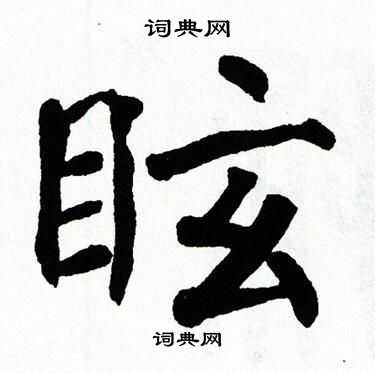 词典网
眩
词典网